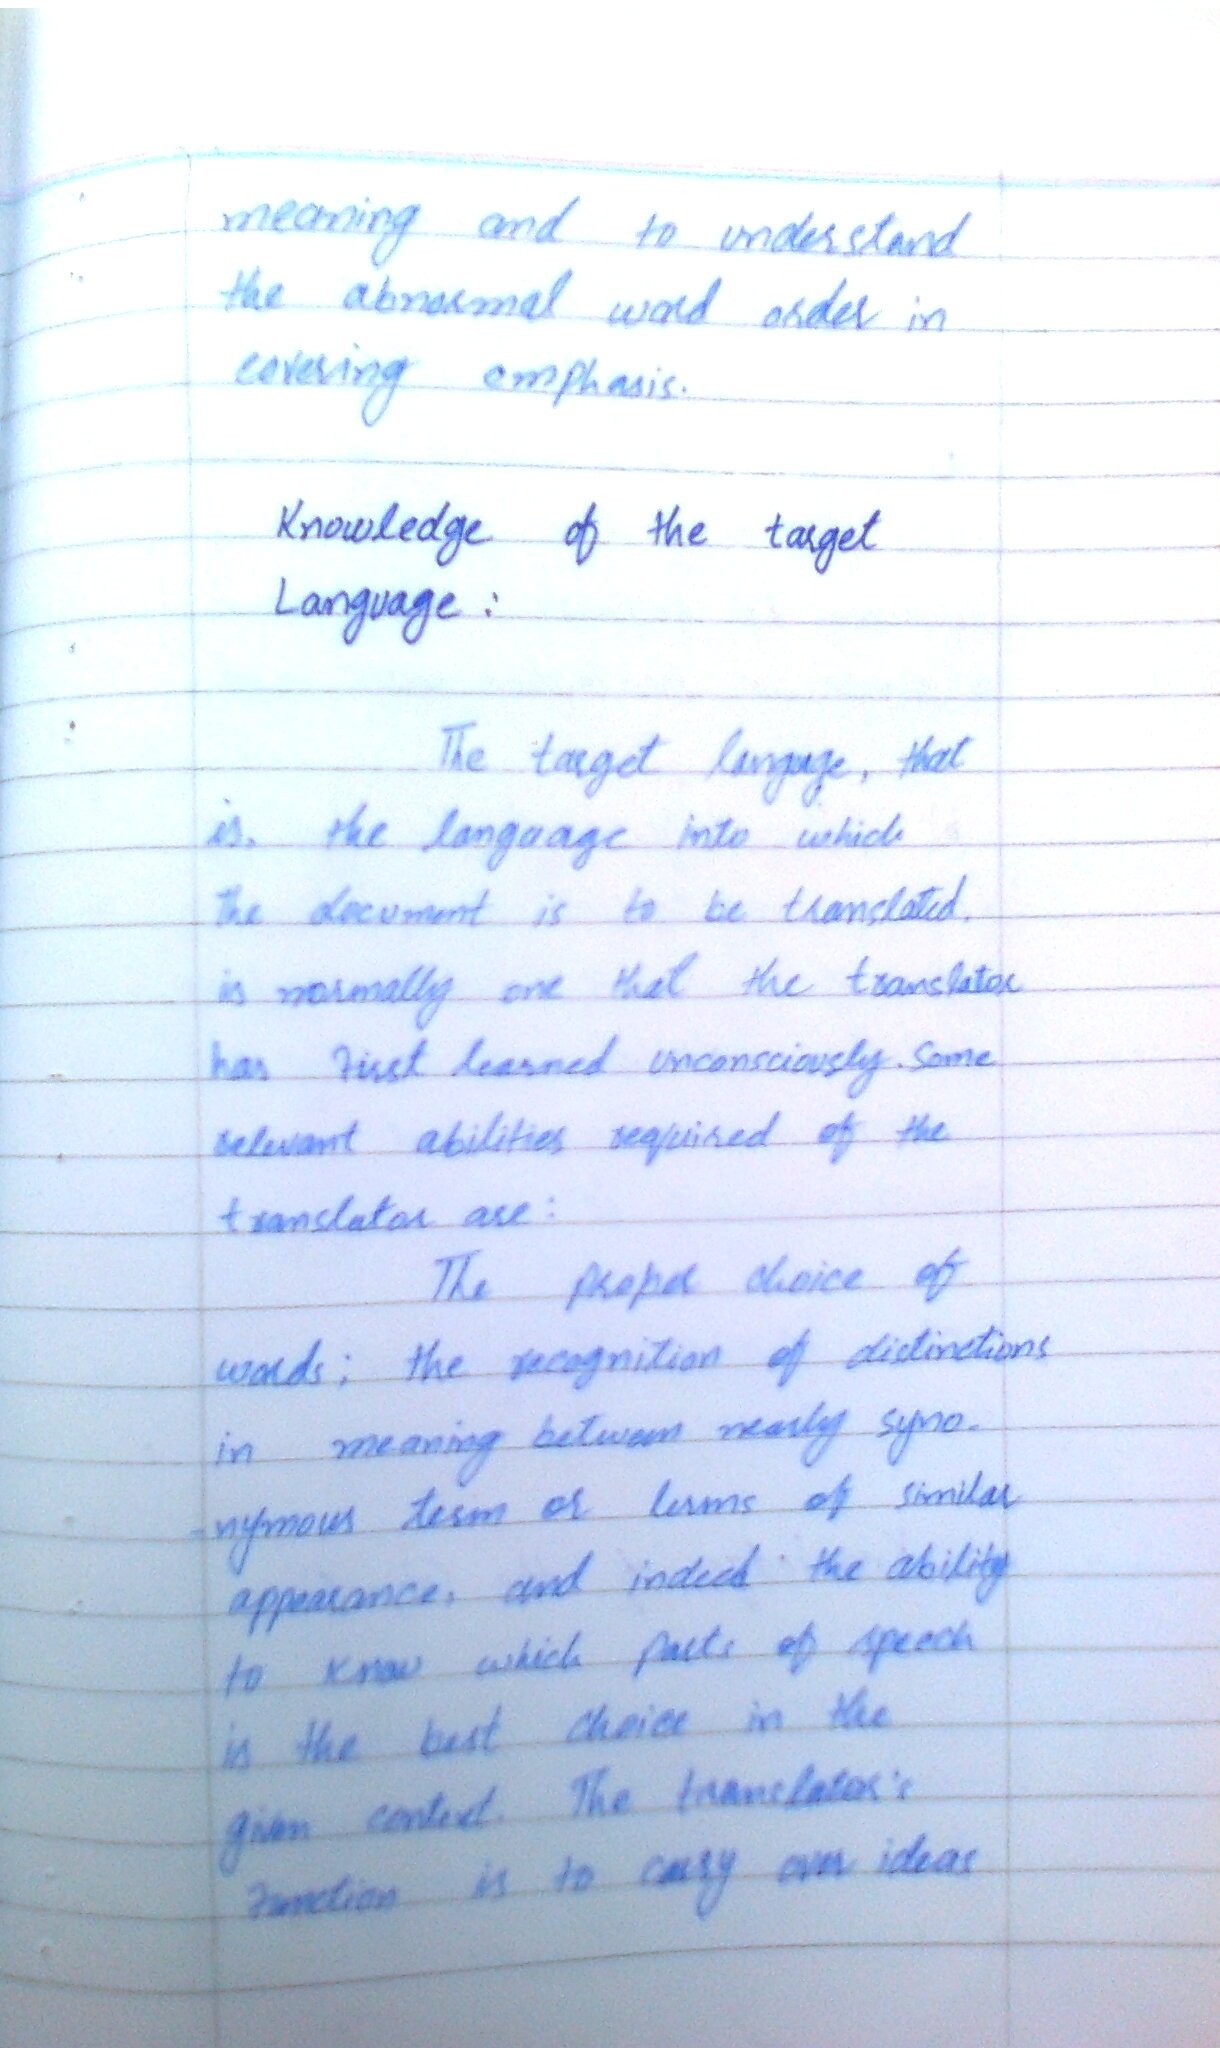 meaning and to understand
the abnormal word order in
covering emphasis.
Knowledge of the target
Language :
The target language, that
is, the language into which
the document is to be translated.
is normally one that the translator
has first learned unconsciously. Some
relevant abilities required of the
translator are:
The proper choice of
words; the recognition of distinctions
in meaning between nearly syno-
-nymous term or terms of similar
appearance, and indeed the ability
to know which parts of speech
is the best choice in the
given context. The translator's
function is to carry over ideas